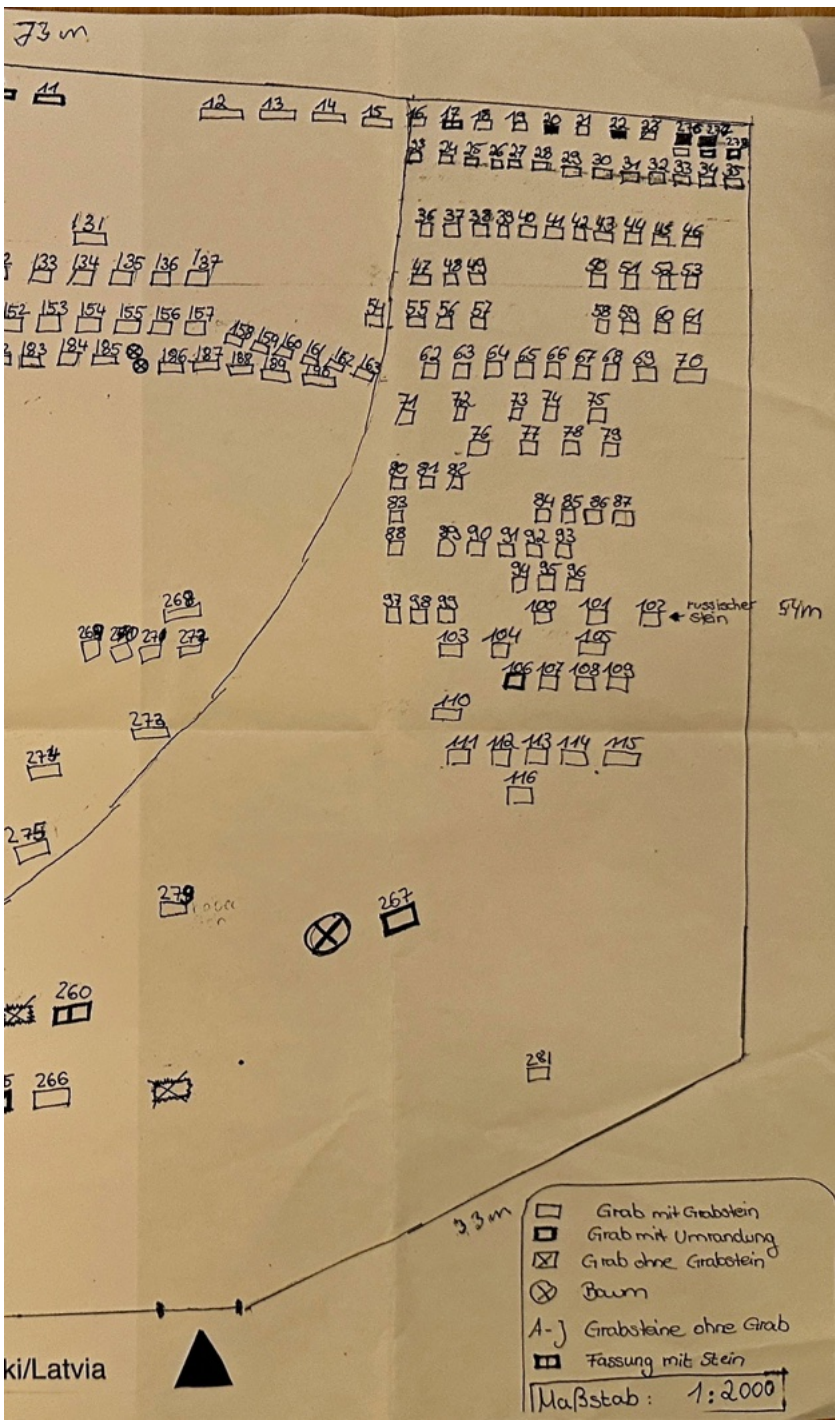 73 m
11 12 13 14 15 16 17 18 19 20 21 22 23 276 277 278
23 24 25 26 27 28 29 30 31 32 33 34 35
131 36 37 38 39 40 41 42 43 44 45 46
133 134 135 136 137 47 48 49 50 51 52 53
152 153 154 155 156 157 54 55 56 57 58 59 60 61
158 159 160 161 162 163
183 184 185 186 187 188 189 190 62 63 64 65 66 67 68 69 70
71 72 73 74 75
76 77 78 79
80 81 82
83 84 85 86 87
88 89 90 91 92 93
94 95 96
268 97 98 99 100 101 102 russischer
stein
54m
269 270 271 272 103 104 105
106 107 108 109
273 110
274 111 112 113 114 115
116
275
279 267
260
266 281
33 m
Grab mit Grabstein
Grab mit Umrandung
Grab ohne Grabstein
Baum
A-J Grabsteine ohne Grab
Fassung mit Stein
Maßstab: 1:2000
ki/Latvia